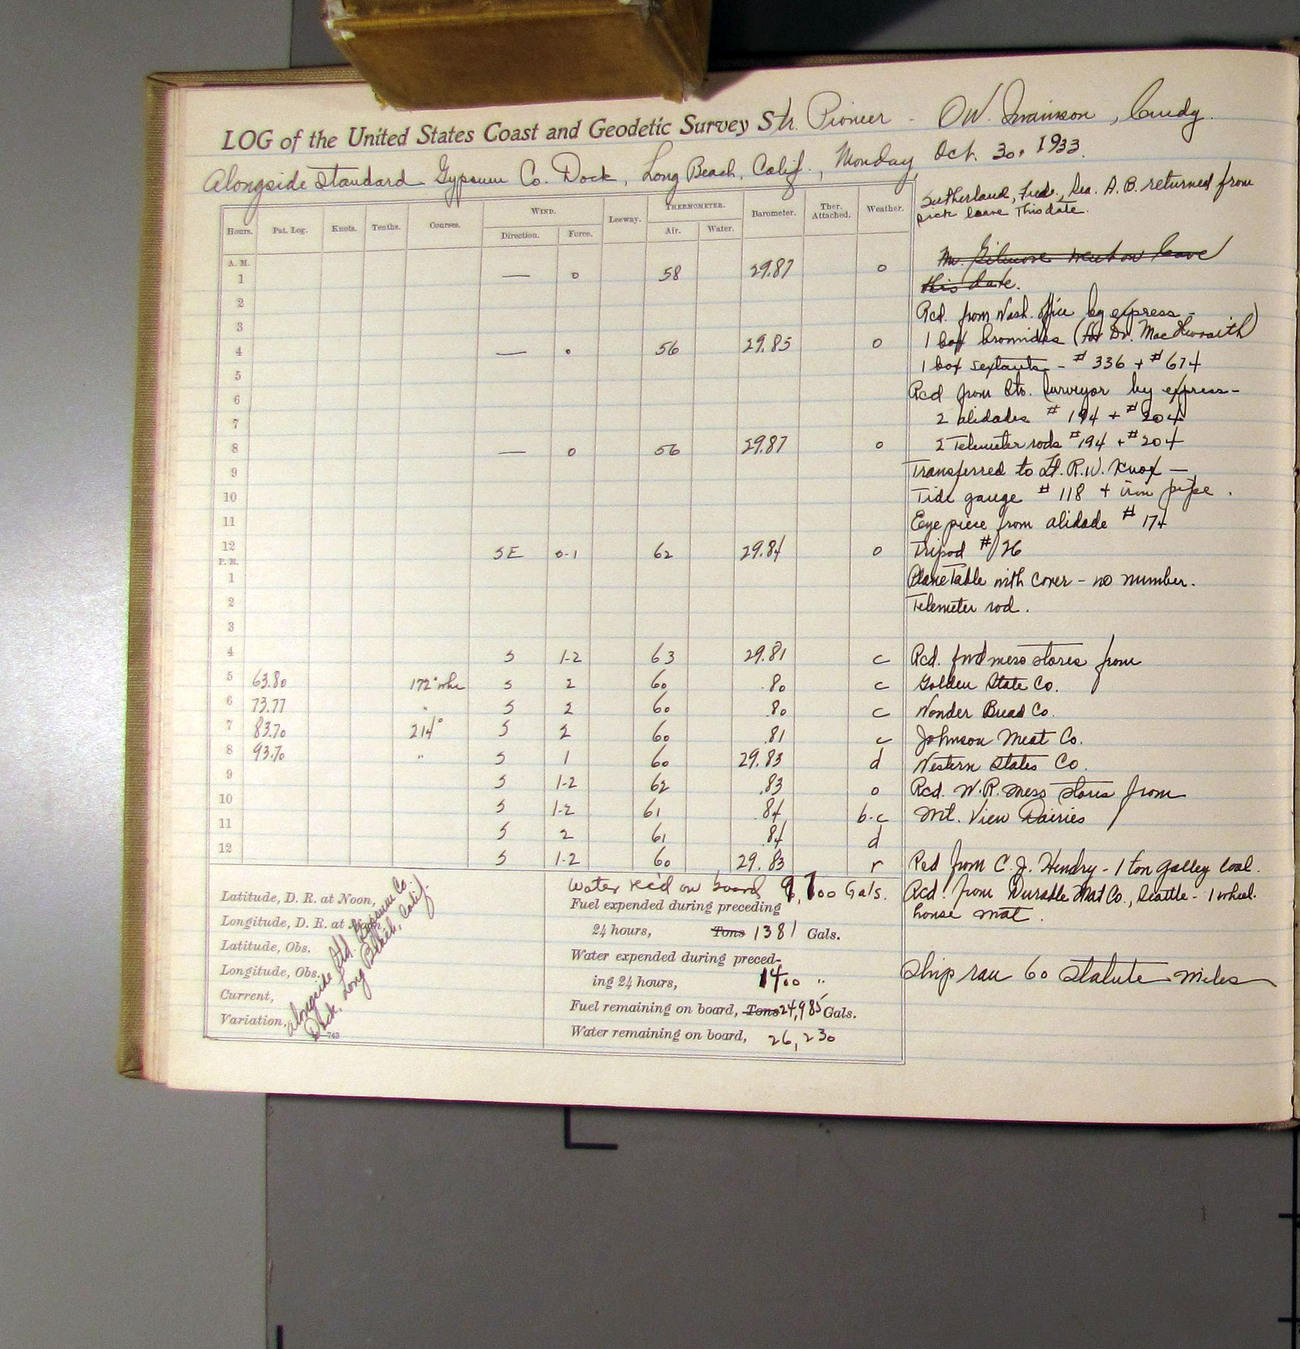 LOG of the United States Coast and Geodetic Survey Str. Pioneer - O.W. Swainson, Comdg.
Alongside Standard Gypsum Co. Dock, Long Beach, Calif., Monday, Oct. 30, 1933.
Hours. Pat. Log. Knots. Tenths. Courses. WIND. Leeway. THERMOMETER. Barometer. Ther. Attached. Weather.
Direction. Force. Air. Water.
A. M.
1 — 0 58 29.87 o
2
3
4 — 0 56 29.85 o
5
6
7
8 — 0 56 29.87 o
9
10
11
12 SE 0-1 62 29.84 o
P. M.
1
2
3
4 S 1-2 63 29.81 c
5 63.80 172° S 2 60 .80 c
6 73.77 " S 2 60 .80 c
7 83.70 214° S 2 60 .81 c
8 93.70 " S 1 60 29.83 d
9 S 1-2 62 .83 o
10 S 1-2 61 .84 b-c
11 S 2 61 .84 d
12 S 1-2 60 29.83 r
Sutherland, Fred., Sea. A.B. returned from
sick leave This date.
Mr. Gilmore went on leave
this date.
Rcd. from Wash. Office by express -
1 box bromides (for Dr.
1 box sextants - # 336 + # 674
Rcd from Sto. Surveyor by express -
2 alidades # 194 + # 204
2 Telemeter rods # 194 + # 204
Transferred to Lt. R.W. Knox —
Tide gauge # 118 + iron pipe.
Eye piece from alidade # 174
Tripod # 126
Plane Table with cover - no number.
Telemeter rod.
Rcd. fwd mess stores from
Golden State Co.
Wonder Bread Co.
Johnson Meat Co.
Western States Co.
Rcd. W.R. mess stores from
Mt. View Dairies
Rcd from C. J. Hendry - 1 ton galley coal.
Rcd. from Durable Mat Co., Seattle - 1 wheel
house mat.
Ship ran 60 statute miles
Latitude, D. R. at Noon,
Longitude, D. R. at Noon,
Latitude, Obs.
Longitude, Obs.
Current,
Variation,
alongside Std. Gypsum Co.
Dock, Long Beach, Calif.
Water rec'd on board 9,700 Gals.
Fuel expended during preceding
24 hours, Tons 1381 Gals.
Water expended during preced-
ing 24 hours, 1400 "
Fuel remaining on board, Tons 24,985 Gals.
Water remaining on board, 26,230